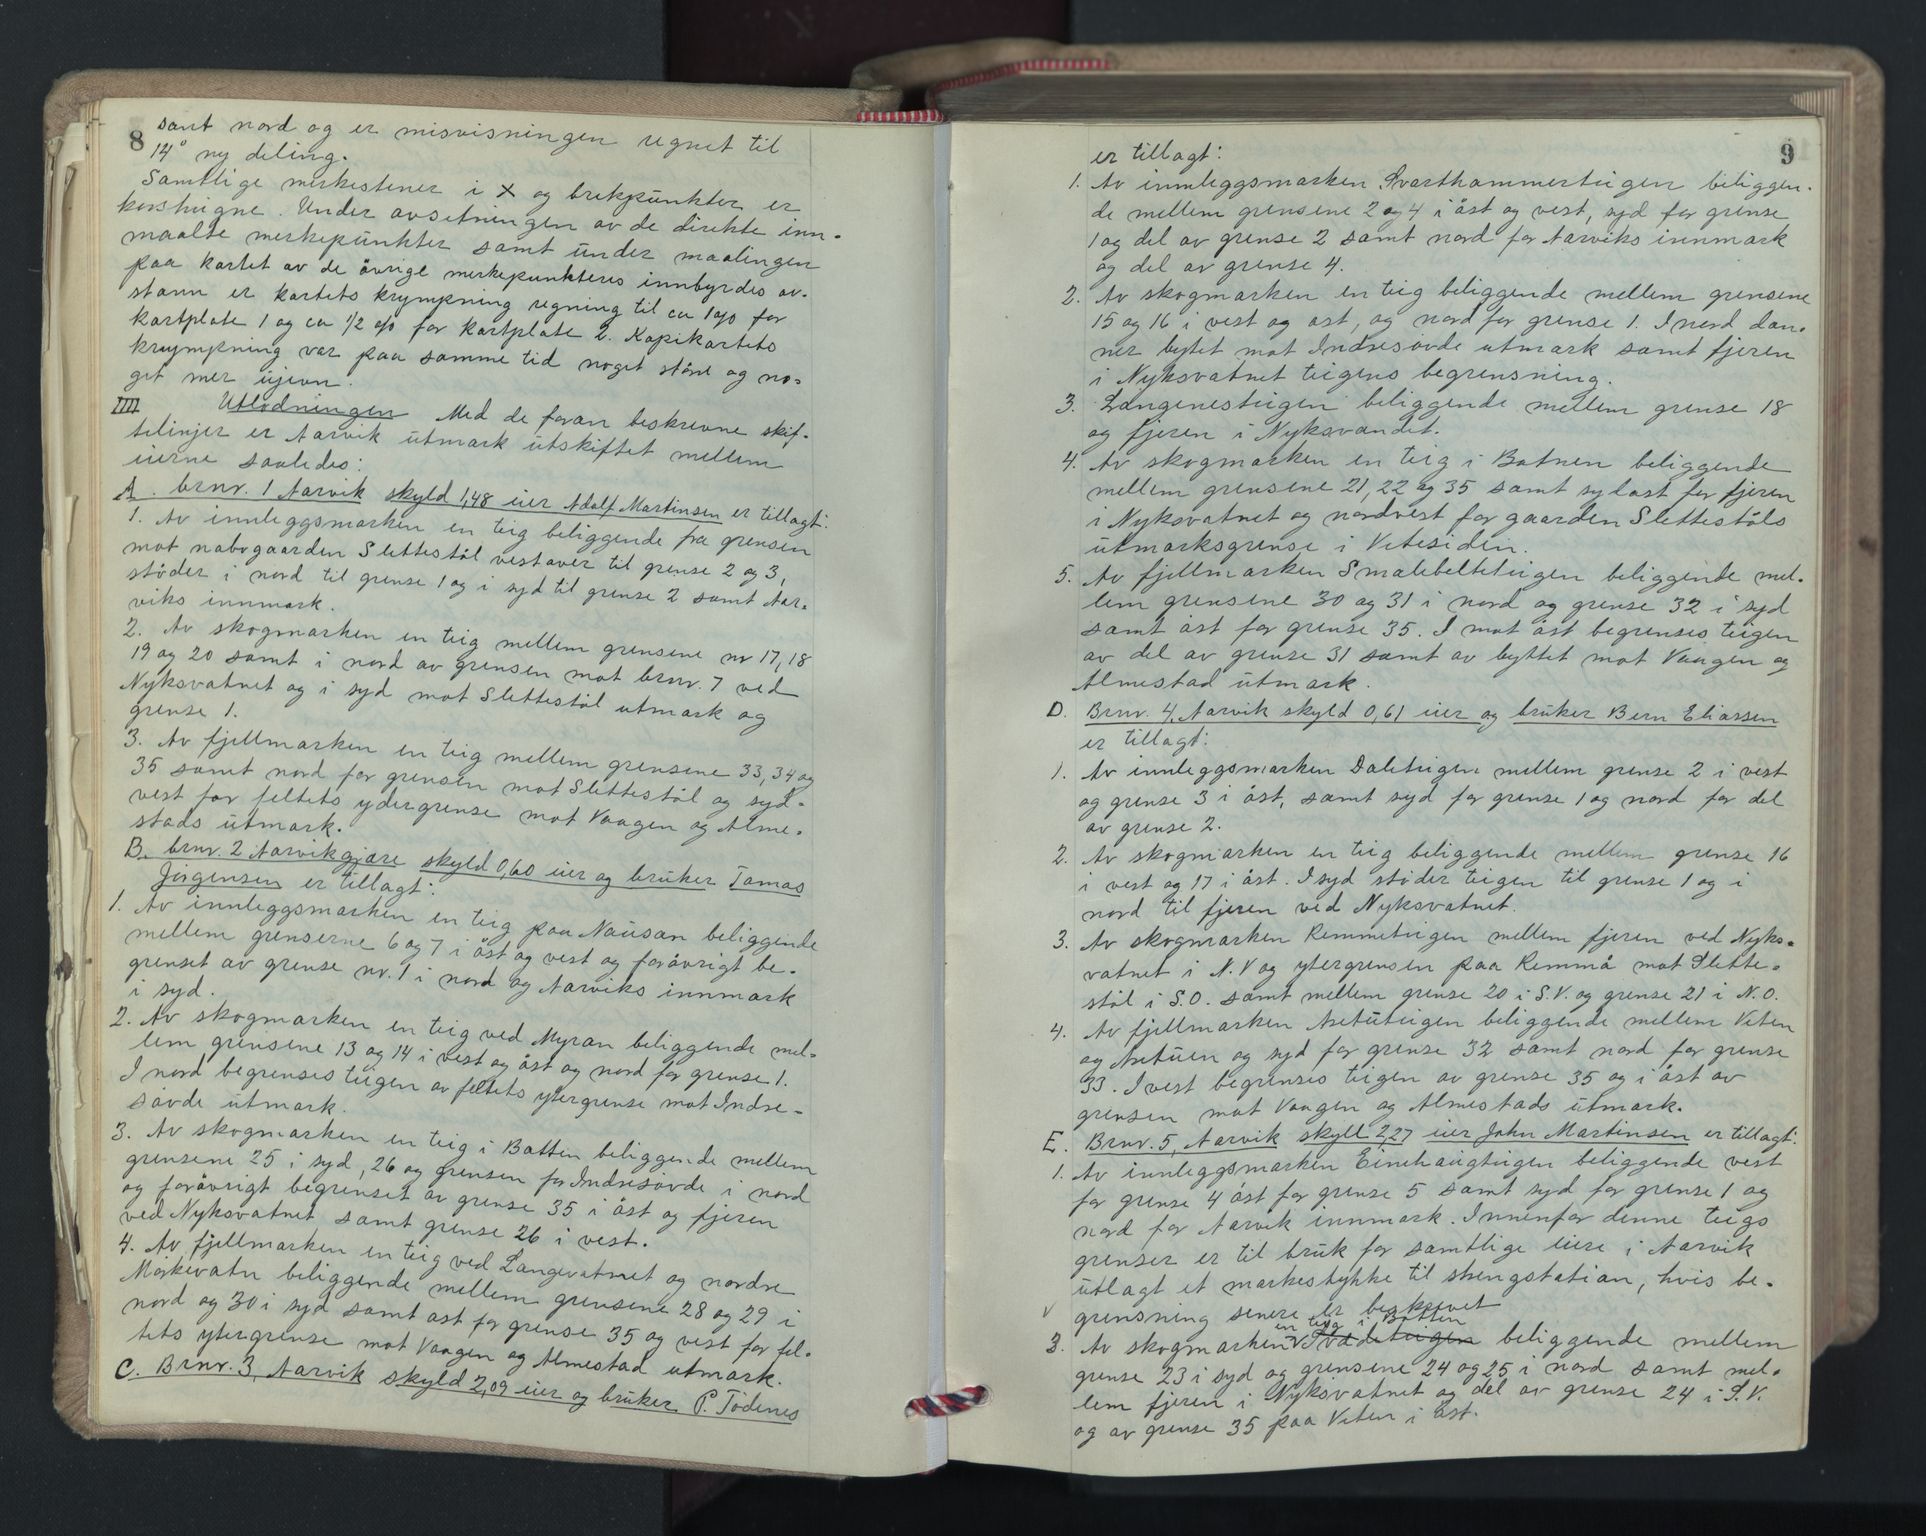 8
samt nord og er misvisningen regnet til
14° ny deling.
Samtlige merkestener i x og brekpunkter er
korshugne. Under avsetningen av de direkte inn-
maalte merkepunkter samt under maalingen
paa kartet av de övrige merkepunkteres innbyrdes av-
stann er kartets krympning regning til ca 1 o/o for
kartplate 1 og ca 1/2 o/o for kartplate 2. Kopikartets
krympning var paa samme tid noget större og no-
get mer ujevn.
IIII Utlodningen Med de foran beskrevne skif-
telinjer er Aarvik utmark utskiftet mellem
eierne saaledes:
A. brnr. 1 Aarvik skyld 1,48 eier Adolf Martinsen er tillagt:
1. Av innleggsmarken en teig beliggende fra grensen
mot nabogaarden Slettestöl vestover til grense 2 og 3,
stöder i nord til grense 1 og i syd til grense 2 samt Aar-
viks innmark.
2. Av skogmarken en teig mellem grensene nr 17, 18
19 og 20 samt i nord av grensen mot brnr. 7 ved
Nyksvatnet og i syd mot Slettestöl utmark og
grense 1.
3. Av fjellmarken en teig mellem grensene 33, 34 og
35 samt nord for grensen mot Slettestöl og syd-
vest for feltets ydergrense mot Vaagen og Alme-
stads utmark.
B. brnr. 2 Aarvikgjære skyld 0,60 eier og bruker Tomas
Jörgensen er tillagt:
1. Av innleggsmarken en teig paa Nausan beliggende
mellem grenserne 6 og 7 i öst og vest og forövrigt be-
grenset av grense nr. 1 i nord og Aarviks innmark
i syd.
2. Av skogmarken en teig ved Myran beliggende mel-
lem grensene 13 og 14 i vest og öst og nord for grense 1.
I nord begrenses teigen av feltets ytergrense mot Indre-
sövde utmark.
3. Av skogmarken en teig i Botten beliggende mellem
grensene 25 i syd, 26 og grensen for Indresövde i nord
og forövrigt begrenset av grense 35 i öst og fjeren
ved Nyksvatnet samt grense 26 i vest.
4. Av fjellmarken en teig ved Langevatnet og nordre
Mörkevatn beliggende mellem grensene 28 og 29 i
nord og 30 i syd samt öst for grense 35 og vest for fel-
tets ytergrense mot Vaagen og Almestad utmark.
C. Brnr. 3, Aarvik skyld 2,09 eier og bruker P. Tödenes
9
er tillagt:
1. Av innleggsmarken Svarthammerteigen beliggen-
de mellem grensene 2 og 4 i öst og vest, syd for grense
1 og del av grense 2 samt nord for Aarviks innmark
og del av grense 4.
2. Av skogmarken en teig beliggende mellem grensene
15 og 16 i vest og öst, og nord for grense 1. I nord dan-
ner bytet mot Indresövde utmark samt fjeren
i Nyksvatnet teigens begrensning.
3. Langenesteigen beliggende mellem grense 18
og fjeren i Nyksvandet.
4. Av skogmarken en teig i Botnen beliggende
mellem grensene 21, 22 og 35 samt sydöst for fjeren
i Nyksvatnet og nordvest for gaarden Slettestöls
utmarksgrense i Vetesiden.
5. Av fjellmarken Smalebelteteigen beliggende mel-
lem grensene 30 og 31 i nord og grense 32 i syd
samt öst for grense 35. I mot öst begrenses teigen
av del av grense 31 samt av byttet mot Vaagen og
Almestad utmark.
D. Brnr. 4, Aarvik skyld 0,61 eier og bruker Bern Eliassen
er tillagt:
1. Av innleggsmarken Daleteigen mellem grense 2 i vest
og grense 3 i öst, samt syd for grense 1 og nord for del
av grense 2.
2. Av skogmarken en teig beliggende mellem grense 16
i vest og 17 i öst. I syd stöder teigen til grense 1 og i
nord til fjeren ved Nyksvatnet.
3. Av skogmarken Remmeteigen mellem fjeren ved Nyks-
vatnet i N.V og ytergrensen paa Remmå mot Slette-
stöl i S.O. samt mellem grense 20 i S.V. og grense 21 i N.O.
4. Av fjellmarken Aretuteigen beliggende mellem Veten
og Aretuen og syd for grense 32 samt nord for grense
33. I vest begrenses teigen av grense 35 og i öst av
grensen mot Vaagen og Almestads utmark.
E. Brnr. 5, Aarvik skyll 2,27 eier John Martinsen er tillagt:
1. Av innleggsmarken Einehaugteigen beliggende vest
for grense 4 öst for grense 5 samt syd for grense 1 og
nord for Aarvik innmark. Innenfor denne teigs
grenser er til bruk for samtlige eiere i Aarvik
utlagt et markestykke til skengstation, hvis be-
grensning senere er beskrevet
en teig i Botten
3. Av skogmarken beliggende mellem
grense 23 i syd og grensene 24 og 25 i nord samt mel-
lem fjeren i Nyksvatnet og del av grense 24 i S.V.
og av grense 35 paa Veten i öst.